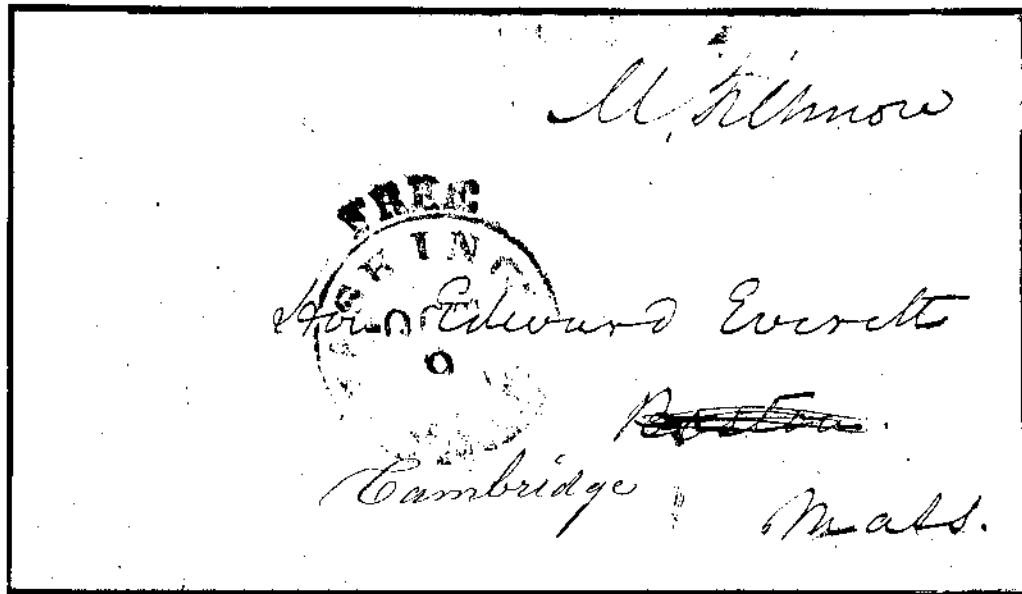 M. Fillmore
FREE
Hon Edward Everett
9
Boston.
Cambridge
Mass.